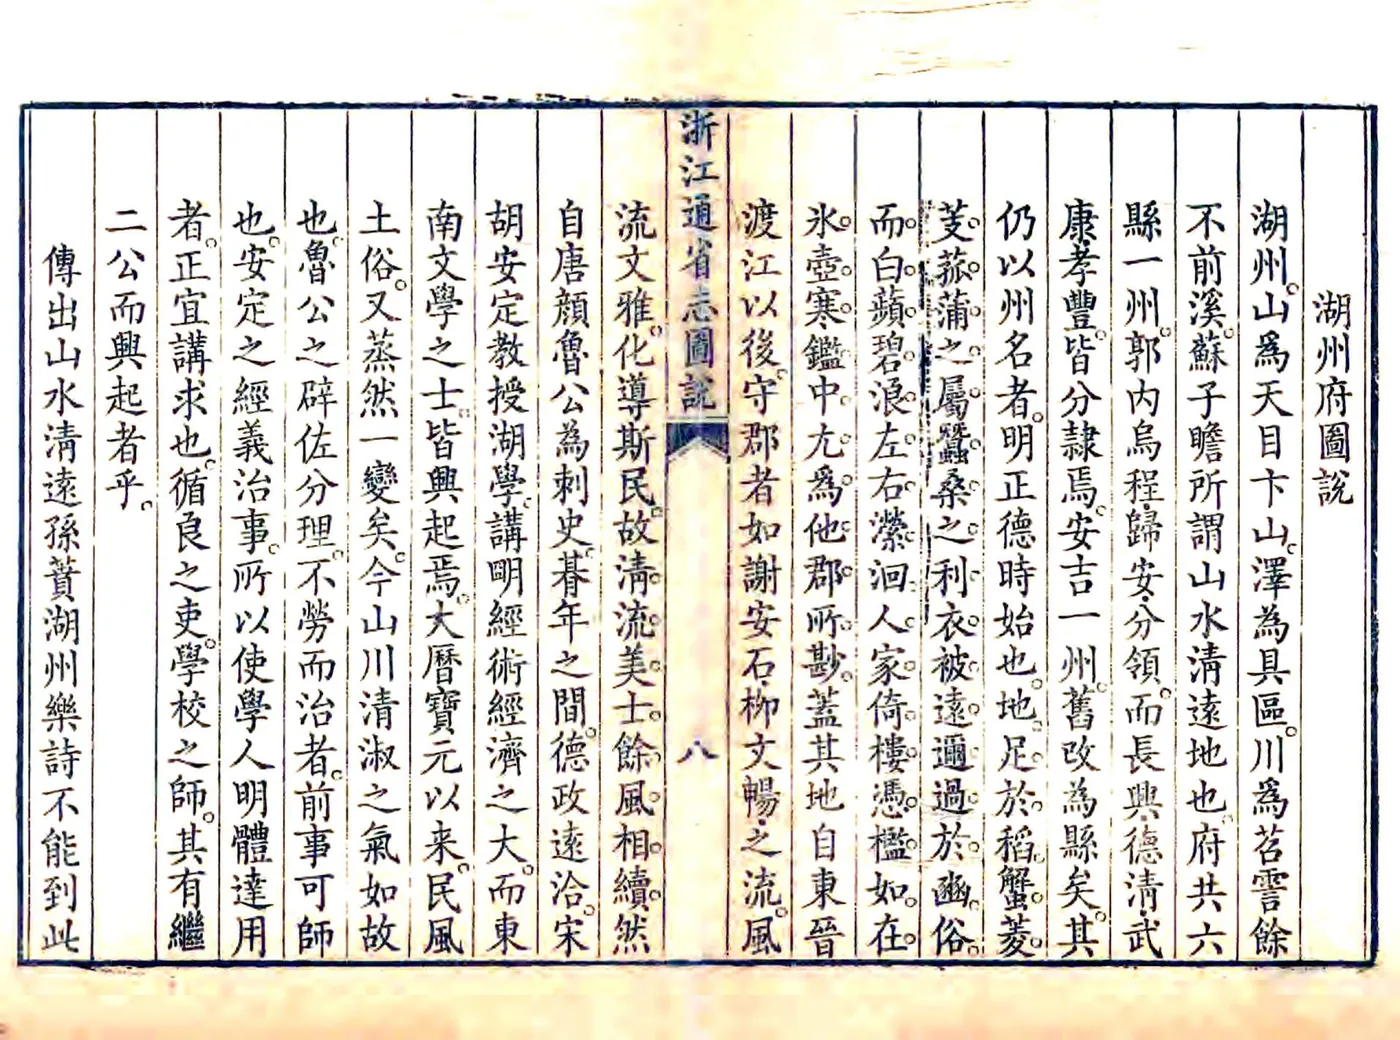 湖州府圖說
湖州。山爲天目卞山。澤為具區。川爲苕霅餘
不前溪。蘇子瞻所謂山水淸遠地也。府共六
縣一州。郭内烏程歸安分領。而長興德淸武
康孝豐。皆分隷焉。安吉一州。舊改為縣矣。其
仍以州名者。明正德時始也。地足於稻蟹。菱
芰。菰蒲之屬。蠶桑之利。衣被遠邇。過於豳俗。
而白蘋碧浪。左右瀠洄。人家倚樓憑檻。如在
氷壺寒鑑中。尤爲他郡所尠。蓋其地自東晉
渡江以後。守郡者如謝安石柳文暢之流。風
浙江通省志圖說
八
流文雅。化導斯民。故淸流美士。餘風相續。然
自唐顔魯公為刺史。朞年之間。德政遠洽。宋
胡安定教授湖學。講明經術經濟之大。而東
南文學之士。皆興起焉。大曆寶元以来。民風
土俗。又蒸然一變矣。今山川清淑之氣如故
也。魯公之辟佐分理。不勞而治者。前事可師
也。安定之經義治事。所以使學人明體達用
者。正宜講求也。循良之吏。學校之師。其有繼
二公而興起者乎。
傳出山水淸遠孫蕡湖州樂詩不能到此